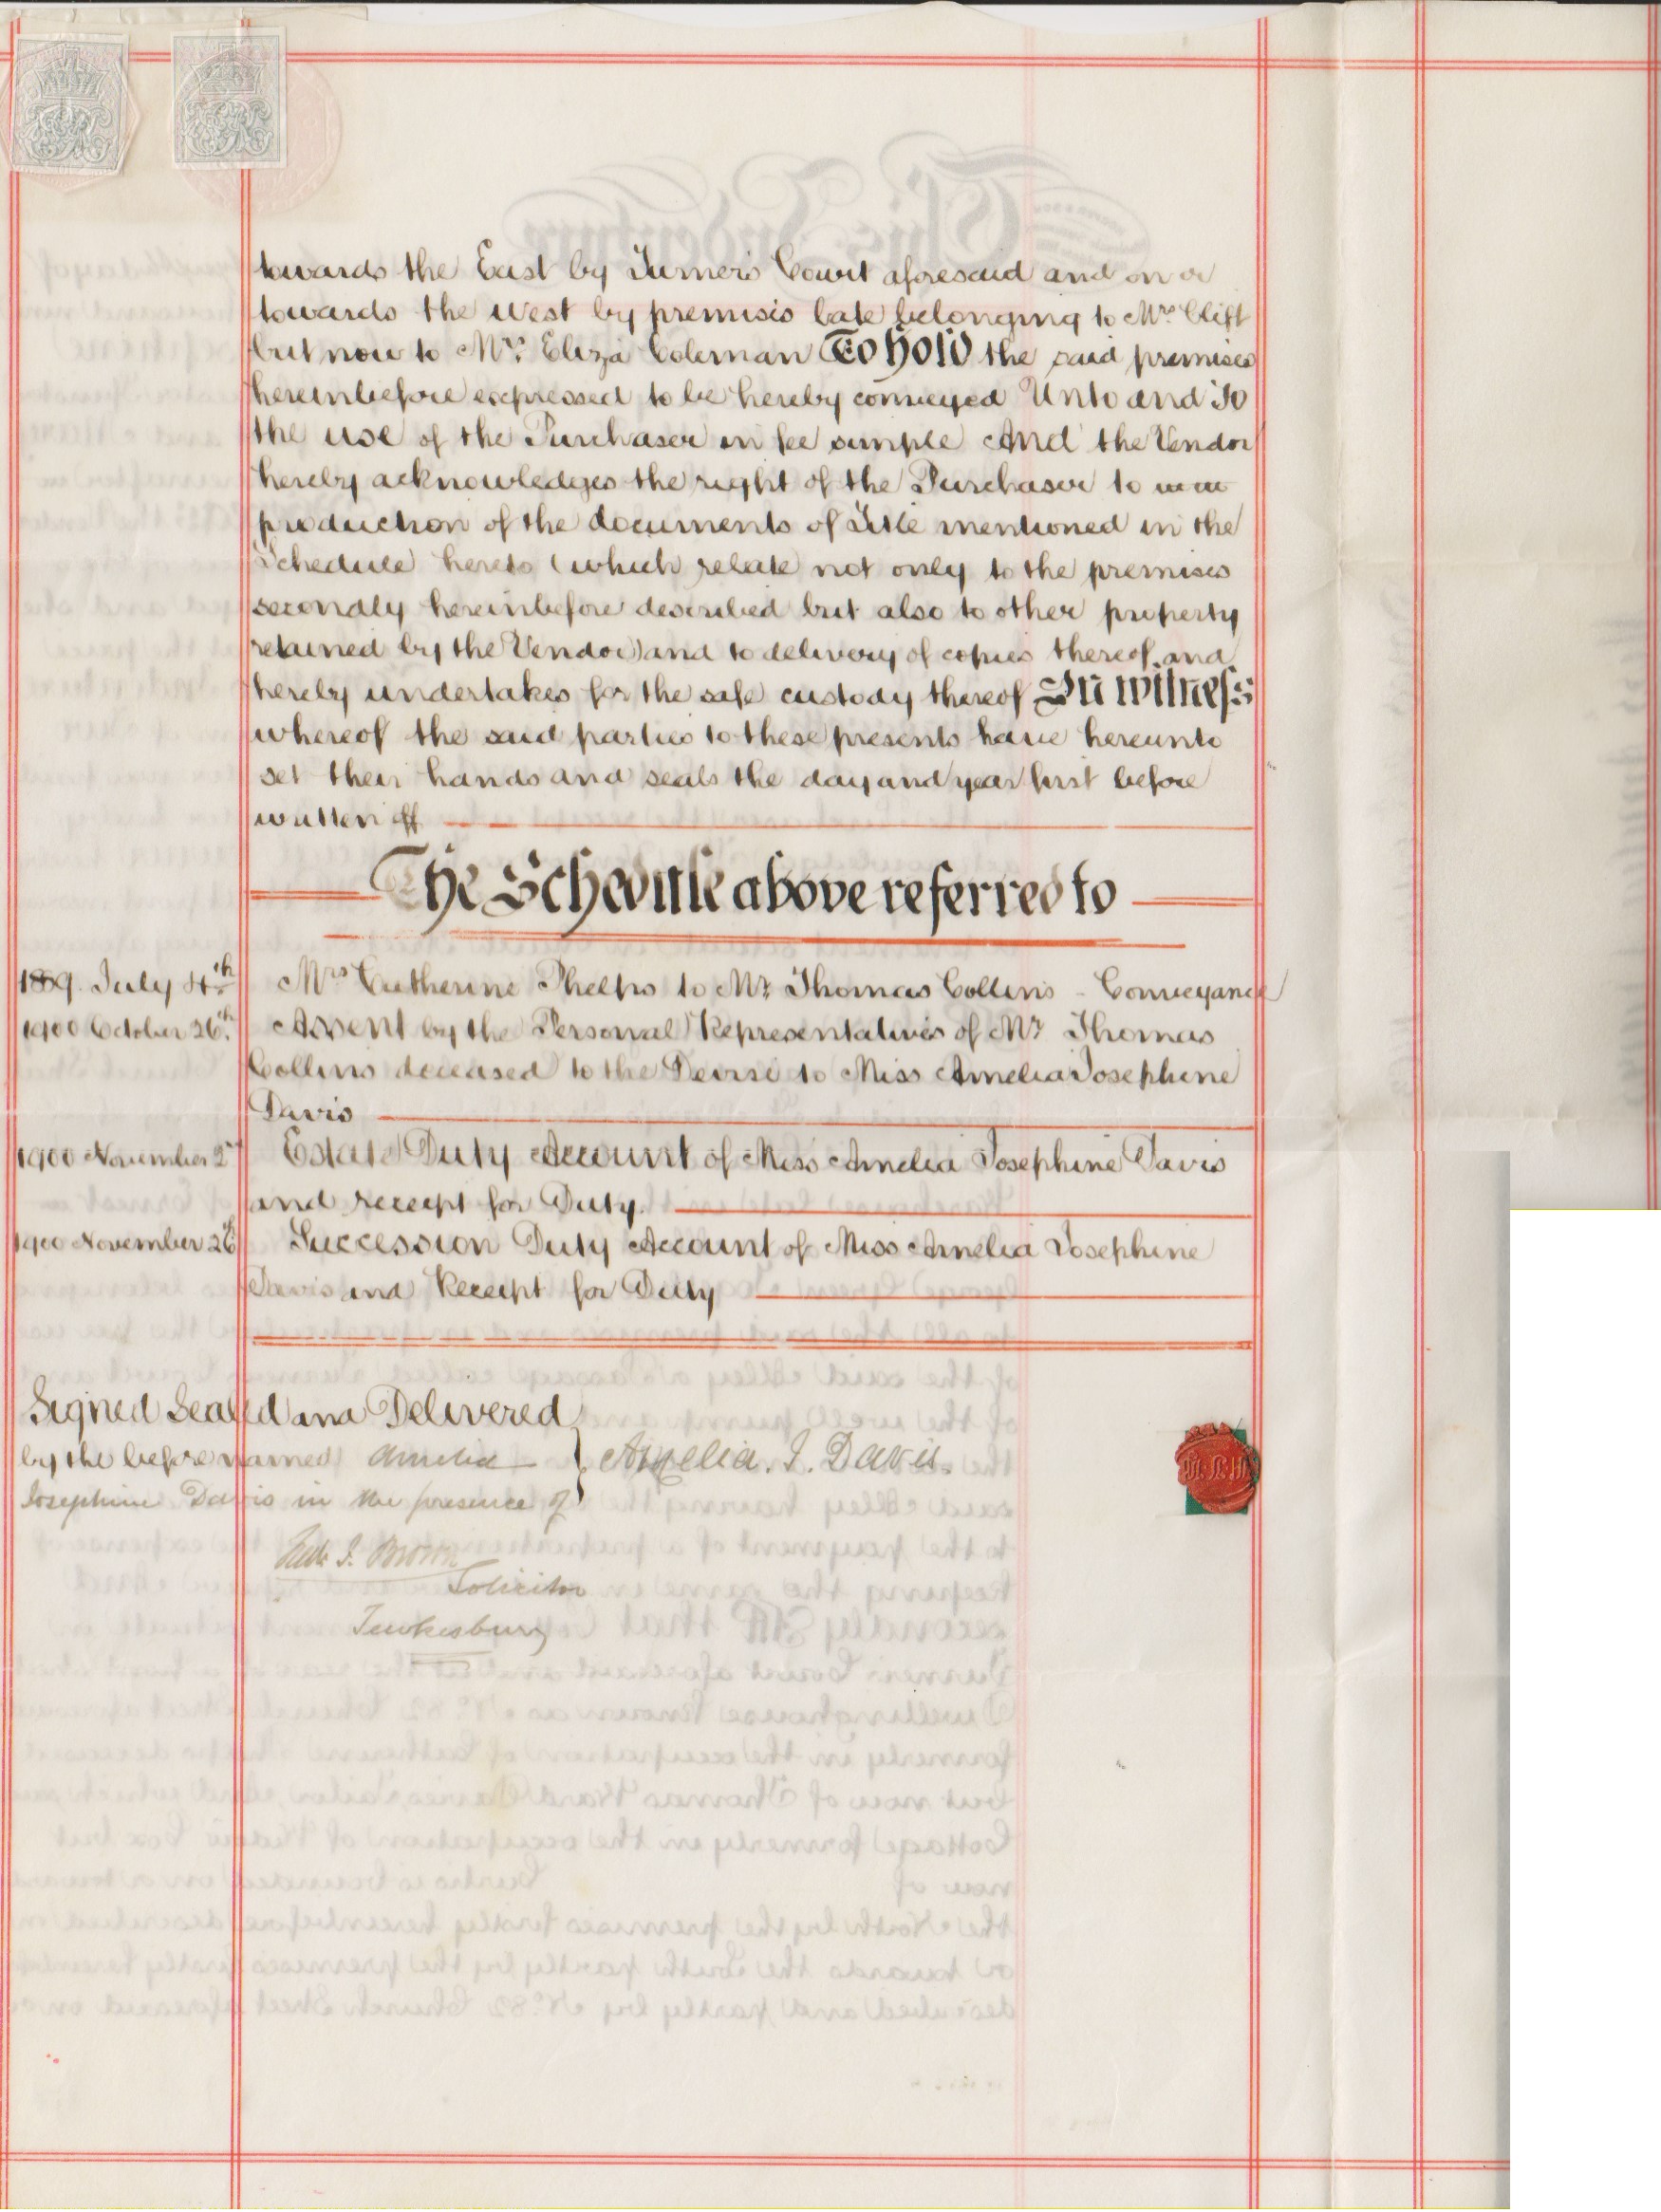 towards the East by Turner's Court aforesaid and on or
towards the West by premises late belonging to Mrs Clift
but now to Mrs Eliza Coleman To hold the said premises
hereinbefore expressed to be hereby conveyed Unto and To
the use of the Purchaser in fee simple And the Vendor
hereby acknowledges the right of the Purchaser to
production of the documents of Title mentioned in the
Schedule hereto (which relate not only to the premises
secondly hereinbefore described but also to other property
retained by the Vendor) and to delivery of copies thereof and
hereby undertakes for the safe custody thereof In witness
whereof the said parties to these presents have hereunto
set their hands and seals the day and year first before
written
The Schedule above referred to
July 4th Mrs Catherine Phelps to Mr Thomas Collins - Conveyance
1900 October 26th Assent by the Personal Representatives of Mr Thomas
Collins deceased to the Devise to Miss Amelia Josephine
Davis
1900 November 2nd Estate Duty Account of Miss Amelia Josephine Davis
and receipt for Duty.
1900 November 26th Succession Duty Account of Miss Amelia Josephine
Davis and Receipt for Duty
Signed Sealed and Delivered
by the before named Amelia } Amelia. J. Davis.
Josephine Davis in the presence of
Brown
Solicitor
Tewkesbury